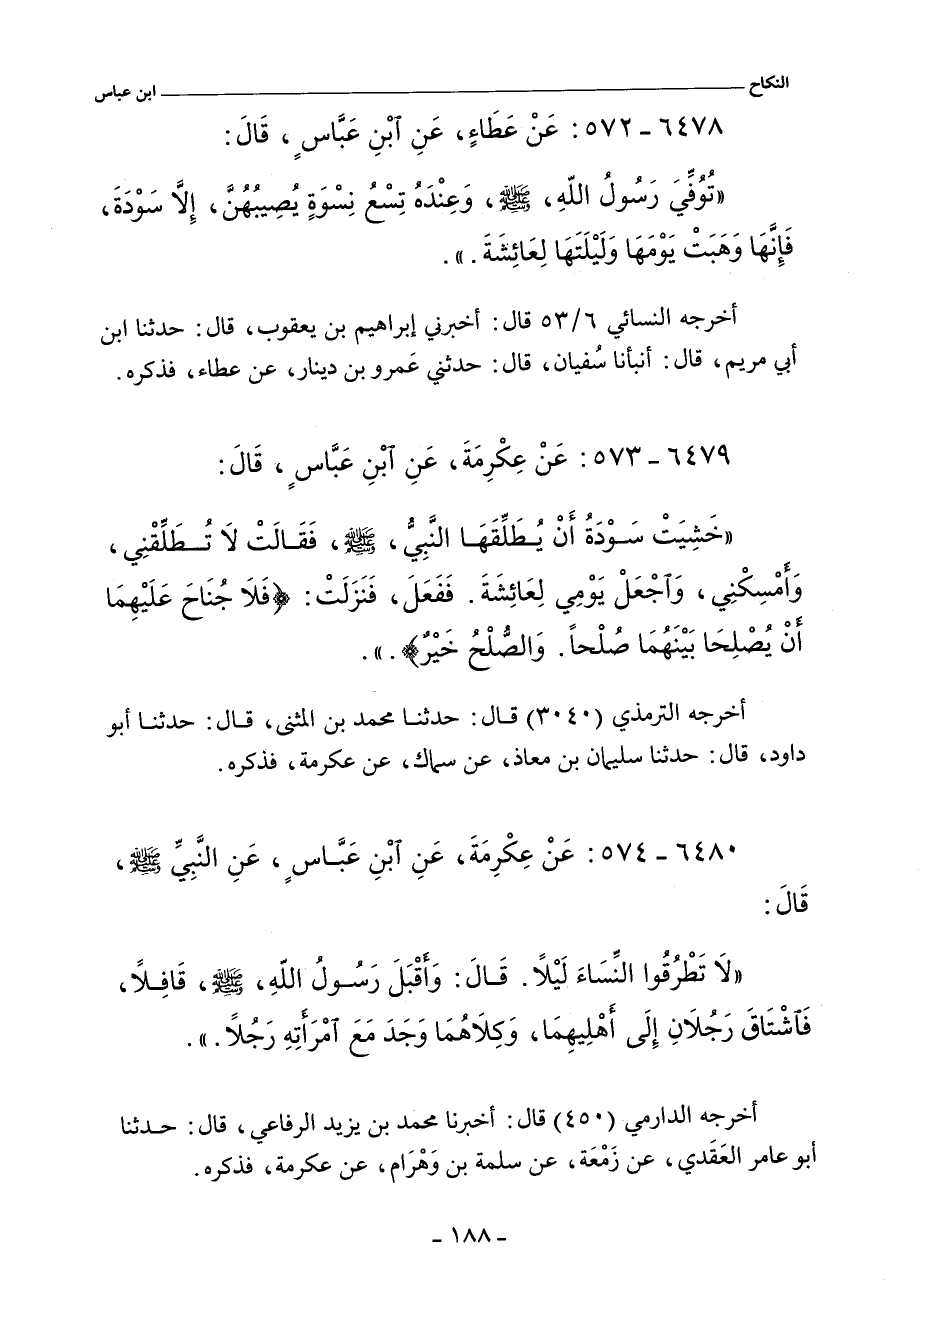 النكاح ـــــــــــــــــــــــــــــ ابن عباس
٦٤٧٨ - ٥٧٢ : عَنْ عَطَاءٍ، عَنِ ٱبْنِ عَبَّاسٍ ، قَالَ :
«تُوُفِّيَ رَسُولُ اللّهِ، ﷺ، وَعِنْدَهُ تِسْعُ نِسْوَةٍ يُصِيبُهُنَّ، إِلَّا سَوْدَةَ،
فَإِنَّهَا وَهَبَتْ يَوْمَهَا وَلَيْلَتَهَا لِعَائِشَةَ . ».
أخرجه النسائي ٥٣/٦ قال : أخبرني إبراهيم بن يعقوب، قال : حدثنا ابن
أبي مريم، قال : أنبأنا سُفيان، قال : حدثني عَمرو بن دينار، عن عطاء، فذكره .
٦٤٧٩ - ٥٧٣ : عَنْ عِكْرِمَةَ، عَنِ ٱبْنِ عَبَّاسٍ ، قَالَ :
«خَشِيَتْ سَوْدَةُ أَنْ يُطَلِّقَهَا النَّبِيُّ، ﷺ، فَقَالَتْ لَا تُطَلِّقْنِي،
وَأَمْسِكْنِي، وَٱجْعَلْ يَوْمِي لِعَائِشَةَ . فَفَعَلَ، فَنَزَلَتْ : ﴿فَلَا جُنَاحَ عَلَيْهِمَا
أَنْ يُصْلِحَا بَيْنَهُمَا صُلْحاً . وَالصُّلْحُ خَيْرٌ﴾ . ».
أخرجه الترمذي (٣٠٤٠) قال : حدثنا محمد بن المثنى، قال : حدثنا أبو
داود، قال : حدثنا سليمان بن معاذ، عن سماك، عن عكرمة، فذكره .
٦٤٨٠ - ٥٧٤ : عَنْ عِكْرِمَةَ، عَنِ ٱبْنِ عَبَّاسٍ ، عَنِ النَّبِيِّ ﷺ،
قَالَ :
«لَا تَطْرُقُوا النِّسَاءَ لَيْلاً . قَالَ : وَأَقْبَلَ رَسُولُ اللّهِ، ﷺ، قَافِلاً،
فَٱشْتَاقَ رَجُلَانِ إِلَى أَهْلِيهِمَا، وَكِلَاهُمَا وَجَدَ مَعَ ٱمْرَأَتِهِ رَجُلاً . ».
أخرجه الدارمي (٤٥٠) قال : أخبرنا محمد بن يزيد الرفاعي، قال : حدثنا
أبو عامر العَقَدي، عن زَمْعَة، عن سلمة بن وَهْرَام، عن عكرمة، فذكره .
- ١٨٨ -